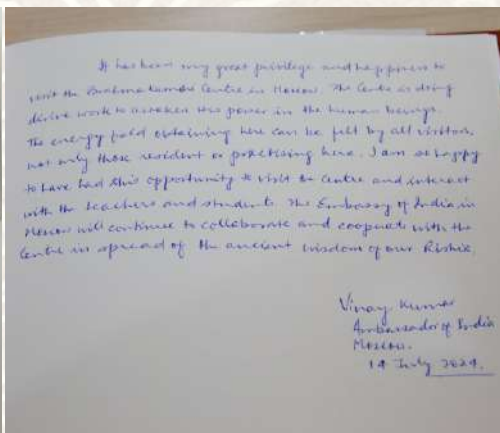 It has been my great privilege and happiness to
visit the Brahmakumaris Centre in Moscow. The Centre is doing
divine work to awaken the power in the human beings.
The energy field obtaining here can be felt by all visitors,
not only those resident or practising here. I am so happy
to have had this opportunity to visit the Centre and interact
with the teachers and students. The Embassy of India in
Moscow will continue to collaborate and cooperate with the
Centre in spread of the ancient wisdom of our Rishis.
Vinay Kumar
Ambassador of India
Moscow.
14 July 2024.